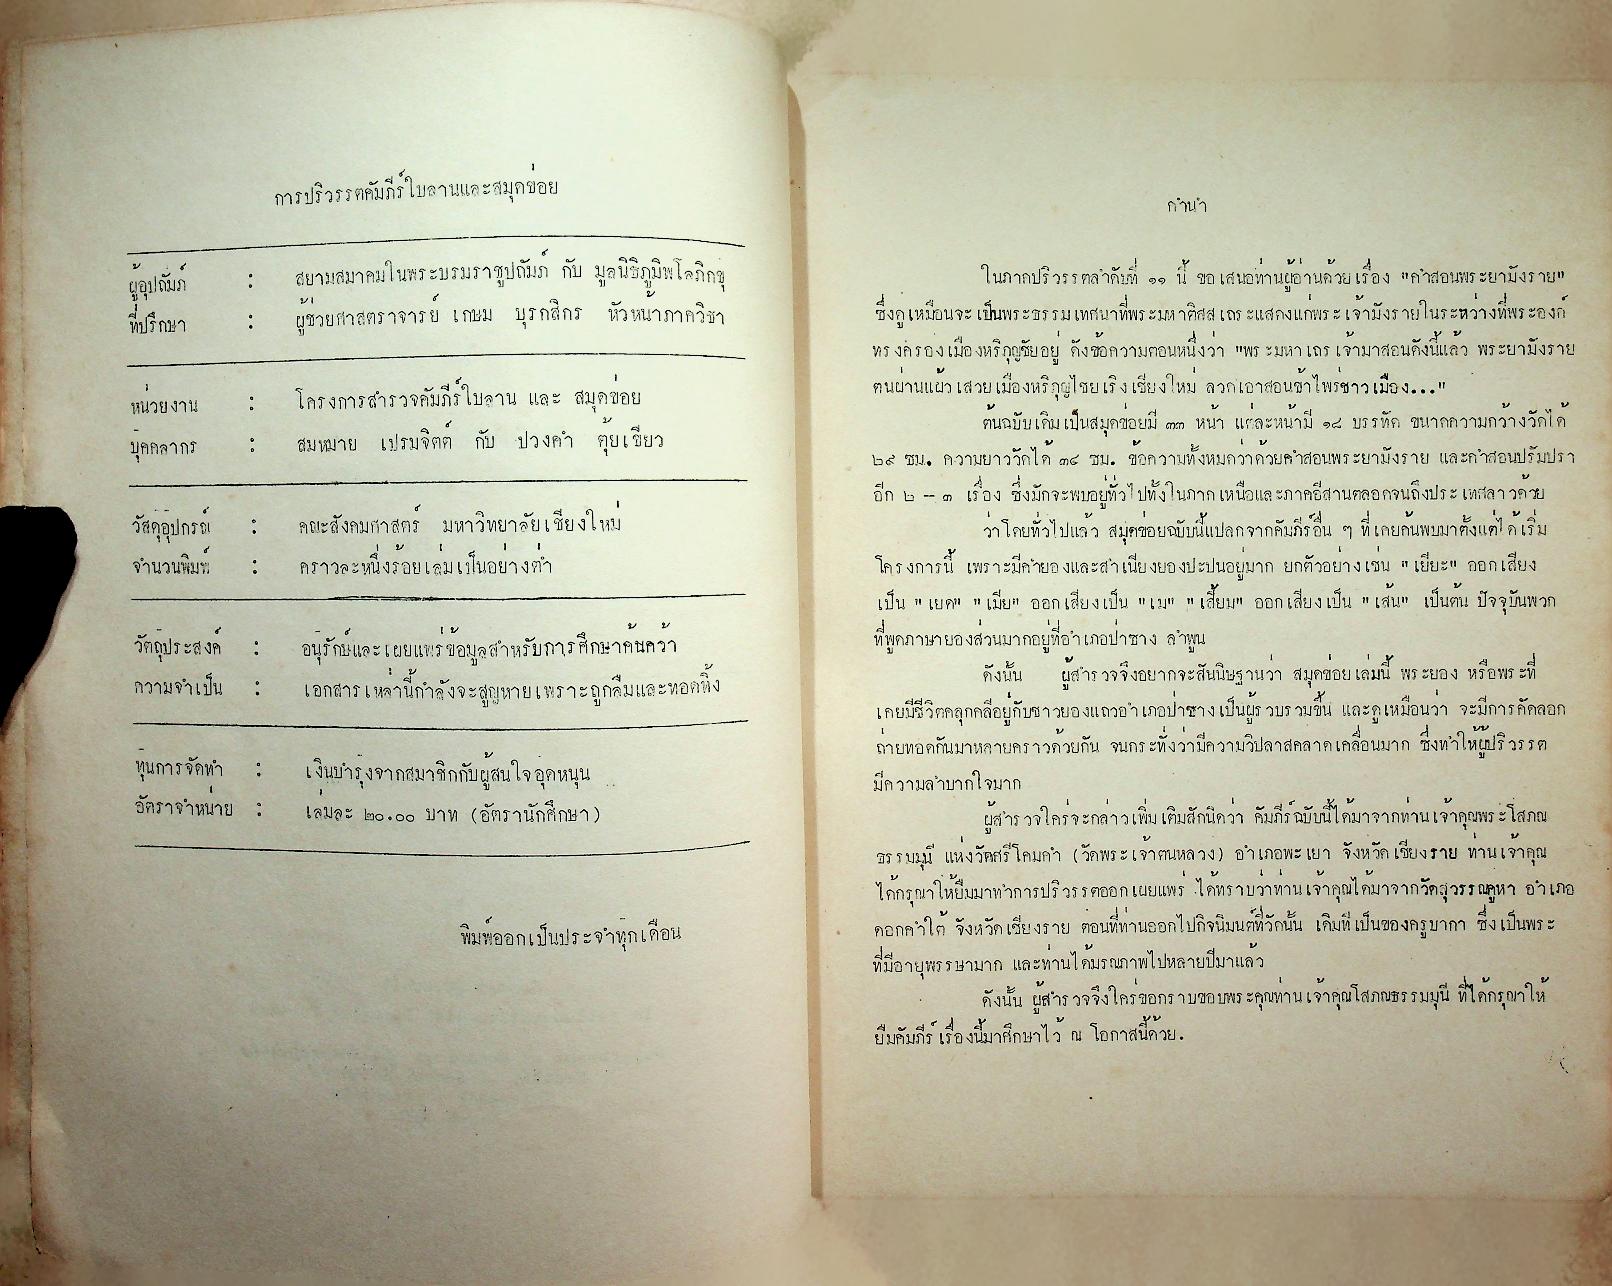 การปริวรรตคัมภีร์ใบลานและสมุดข่อย
ผู้อุปถัมภ์ : สยามสมาคมในพระบรมราชูปถัมภ์ กับ มูลนิธิภูมิพโลภิกขุ
ที่ปรึกษา : ผู้ช่วยศาสตราจารย์ เกษม บุรกสิกร หัวหน้าภาควิชา
หน่วยงาน : โครงการสำรวจคัมภีร์ใบลาน และ สมุดข่อย
บุคคลากร : สมหมาย เปรมจิตต์ กับ ปวงคำ ตุ้ยเขียว
วัสดุอุปกรณ์ : คณะสังคมศาสตร์ มหาวิทยาลัยเชียงใหม่
จำนวนพิมพ์ : คราวละหนึ่งร้อยเล่มเป็นอย่างต่ำ
วัตถุประสงค์ : อนุรักษ์และเผยแพร่ข้อมูลสำหรับการศึกษาค้นคว้า
ความจำเป็น : เอกสารเหล่านี้กำลังจะสูญหายเพราะถูกลืมและทอดทิ้ง
ทุนการจัดทำ : เงินบำรุงจากสมาชิกกับผู้สนใจอุดหนุน
อัตราจำหน่าย : เล่มละ ๒๐.๐๐ บาท (อัตรานักศึกษา)
พิมพ์ออกเป็นประจำทุกเดือน
คำนำ
ในภาคปริวรรตลำดับที่ ๑๑ นี้ ขอเสนอท่านผู้อ่านด้วยเรื่อง "คำสอนพระยามังราย"
ซึ่งดูเหมือนจะเป็นพระธรรมเทศนาที่พระมหาติสสเถระแสดงแก่พระเจ้ามังรายในระหว่างที่พระองค์
ทรงครองเมืองหริภุญชัยอยู่ ดังข้อความตอนหนึ่งว่า "พระมหาเถรเจ้ามาสอนดังนี้แล้ว พระยามังราย
ตนผ่านแผ้วเสวยเมืองหริภุญไชยเริงเชียงใหม่ ลวดเอาสอนข้าไพร่ชาวเมือง..."
ต้นฉบับเดิมเป็นสมุดข่อยมี ๓๓ หน้า แต่ละหน้ามี ๑๘ บรรทัด ขนาดความกว้างวัดได้
๒๙ ซม. ความยาววัดได้ ๓๔ ซม. ข้อความทั้งหมดว่าด้วยคำสอนพระยามังราย และคำสอนปรัมปรา
อีก ๒ - ๓ เรื่อง ซึ่งมักจะพบอยู่ทั่วไปทั้งในภาคเหนือและภาคอีสานตลอดจนถึงประเทศลาวด้วย
ว่าโดยทั่วไปแล้ว สมุดข่อยฉบับนี้แปลกจากคัมภีร์อื่น ๆ ที่เคยค้นพบมาตั้งแต่ได้เริ่ม
โครงการนี้ เพราะมีคำยองและสำเนียงยองปะปนอยู่มาก ยกตัวอย่างเช่น "เยียะ" ออกเสียง
เป็น "เยด" "เมีย" ออกเสียงเป็น "เม" "เสี้ยม" ออกเสียงเป็น "เส้น" เป็นต้น ปัจจุบันพวก
ที่พูดภาษายองส่วนมากอยู่ที่อำเภอป่าซาง ลำพูน
ดังนั้น ผู้สำรวจจึงอยากจะสันนิษฐานว่า สมุดข่อยเล่มนี้ พระยอง หรือพระที่
เคยมีชีวิตคลุกคลีอยู่กับชาวยองแถวอำเภอป่าซางเป็นผู้รวบรวมขึ้น และดูเหมือนว่า จะมีการคัดลอก
ถ่ายทอดกันมาหลายคราวด้วยกัน จนกระทั่งว่ามีความวิปลาสคลาดเคลื่อนมาก ซึ่งทำให้ผู้ปริวรรต
มีความลำบากใจมาก
ผู้สำรวจใคร่จะกล่าวเพิ่มเติมสักนิดว่า คัมภีร์ฉบับนี้ได้มาจากท่านเจ้าคุณพระโสภณ
ธรรมมุนี แห่งวัดศรีโคมคำ (วัดพระเจ้าตนหลวง) อำเภอพะเยา จังหวัดเชียงราย ท่านเจ้าคุณ
ได้กรุณาให้ยืมมาทำการปริวรรตออกเผยแพร่ ได้ทราบว่าท่านเจ้าคุณได้มาจากวัดสุวรรณคูหา อำเภอ
ดอกคำใต้ จังหวัดเชียงราย ตอนที่ท่านออกไปกิจนิมนต์ที่วัดนั้น เดิมทีเป็นของครูบากา ซึ่งเป็นพระ
ที่มีอายุพรรษามาก และท่านได้มรณภาพไปหลายปีมาแล้ว
ดังนั้น ผู้สำรวจจึงใคร่ขอกราบขอบพระคุณท่านเจ้าคุณโสภณธรรมมุนี ที่ได้กรุณาให้
ยืมคัมภีร์เรื่องนี้มาศึกษาไว้ ณ โอกาสนี้ด้วย.